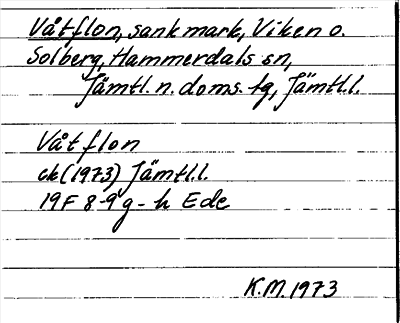 Våtflon, sank mark, Viken o.
Solberg, Hammerdals sn,
Jämtl. n. doms. tg, Jämtl.l.
Våtflon
ek (1973) Jämtl.l.
19F 8-9 g-h Ede
K.M. 1973